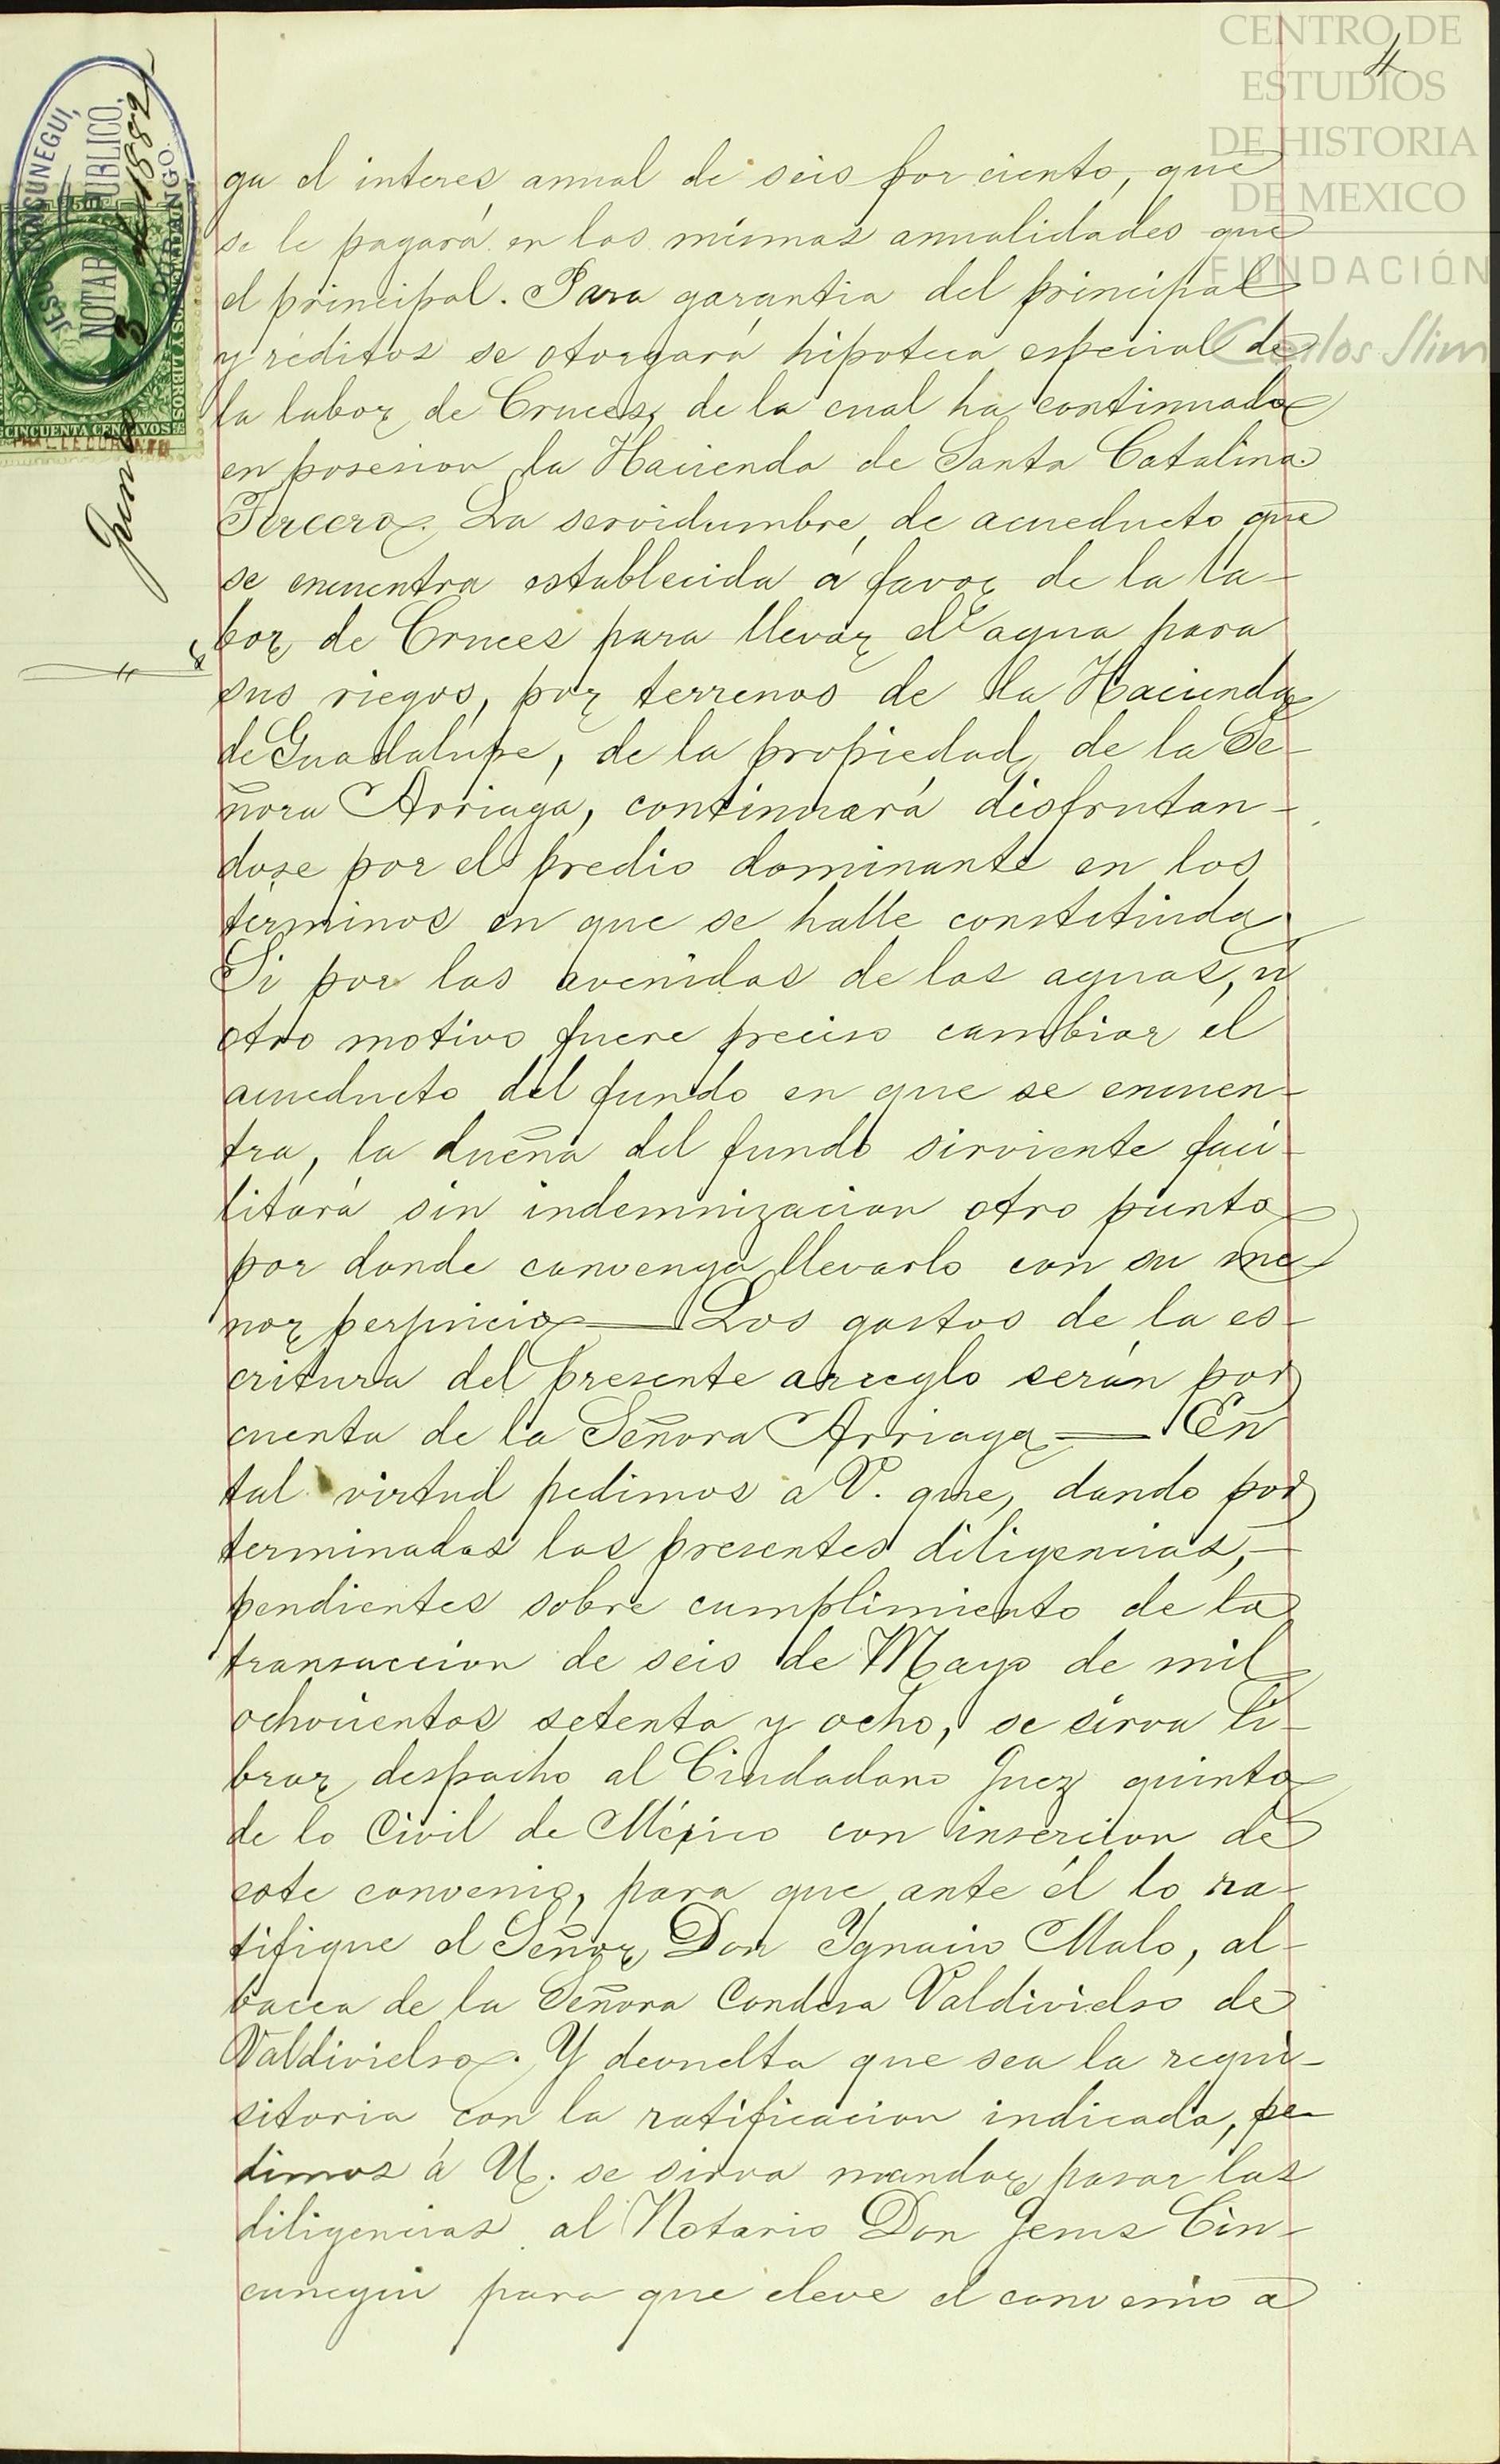 CENTRO DE
ESTUDIOS
DE HISTORIA
DE MEXICO
FUNDACIÓN
Carlos Slim
4
NOTARIO PUBLICO,
DURANGO.
CINCUENTA CENTAVOS
Junio 3 de 1882
ga el interes anual de seis por ciento, que
se le pagará en las mismas anualidades que
el principal. Para garantia del principal
y réditos se otorgará hipoteca especial de
la labor de Cruces, de la cual ha continuado
en posesion la Hacienda de Santa Catalina.
Tercera. La servidumbre de acueducto que
se encuentra establecida á favor de la la-
bor de Cruces para llevar el agua para
sus riegos, por terrenos de la Hacienda
de Guadalupe, de la propiedad de la Se-
ñora Arriaga, continuará disfrutan-
dose por el predio dominante en los
términos en que se halle constituida.
Si por las avenidas de las aguas, ú
otro motivo fuere preciso cambiar el
acueducto del fundo en que se encuen-
tra, la dueña del fundo sirviente faci-
litará sin indemnizacion otro punto
por donde convenga llevarlo con su me
nor perjuicio — Los gastos de la es-
critura del presente arreglo serán por
cuenta de la Señora Arriaga — En
tal virtud pedimos a V. que, dando por
terminadas las presentes diligencias,
pendientes sobre cumplimiento de la
transaccion de seis de Mayo de mil
ochocientos setenta y ocho, se sirva li-
brar despacho al Ciudadano Juez quinto
de lo Civil de México con insercion de
este convenio, para que ante él lo ra-
tifique el Señor Don Ygnacio Malo, al-
bacea de la Señora Condesa Valdivielso de
Valdivielso. Y devuelta que sea la requi-
sitoria con la ratificacion indicada, pe-
dimos á U. se sirva mandar pasar las
diligencias al Notario Don Jesus Cin-
cunegui para que eleve el convenio a